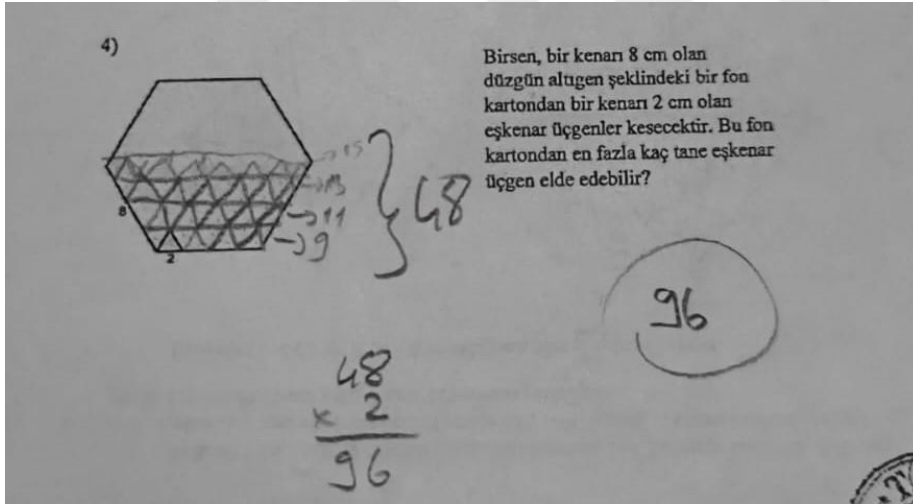 4)
Birsen, bir kenarı 8 cm olan
düzgün altıgen şeklindeki bir fon
kartondan bir kenarı 2 cm olan
eşkenar üçgenler kesecektir. Bu fon
kartondan en fazla kaç tane eşkenar
üçgen elde edebilir?
→15
→13
→11
→9
48
8
2
96
48
x 2
96